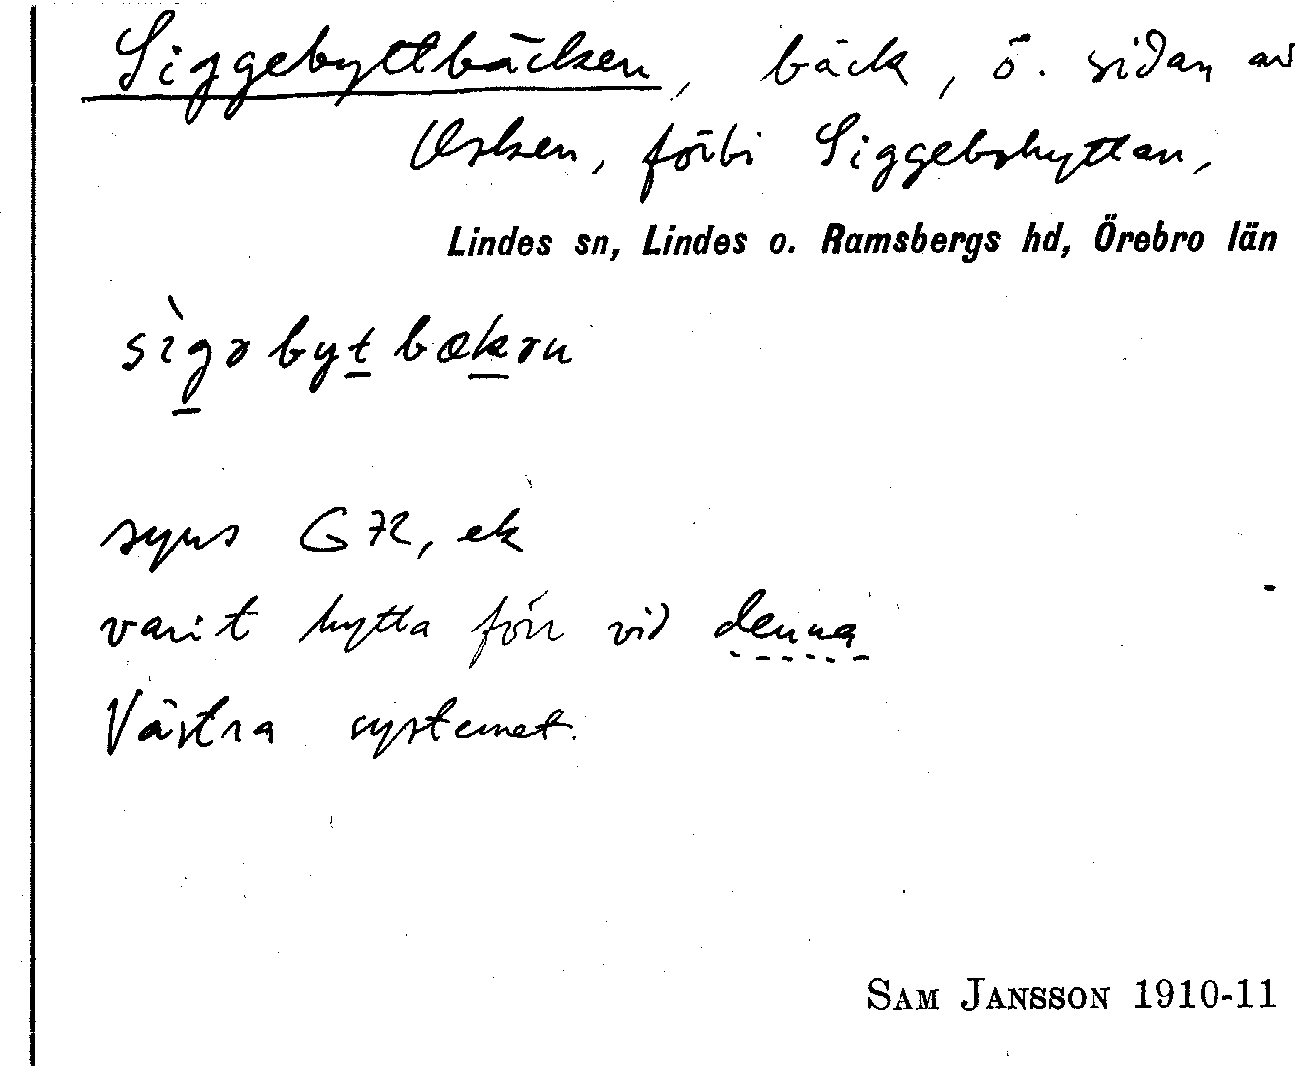 Siggebyttbäcken, bäck, ö. sidan av
Usken, förbi Siggebohyttan,
Lindes sn, Lindes o. Ramsbergs hd, Örebro län
sìgəbytbækən
syns G72, ek
varit hytta förr vid denna
Västra systemet.
SAM JANSSON 1910-11